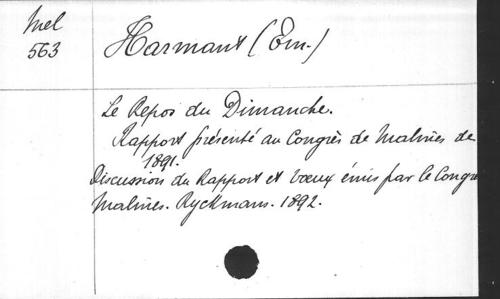 Mel
563
Harmant (Em.)
Le Repos du Dimanche.
Rapport présenté au Congrès de Malines de
1891.
Discussion du Rapport et voeux émis par le Congrè
Malines. Ryckmans. 1892.